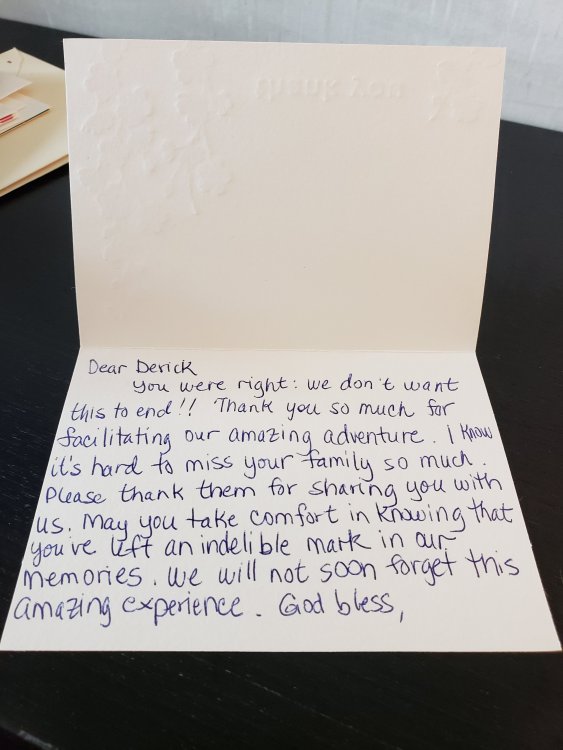 thank you
Dear Derick
you were right: we don't want
this to end!! Thank you so much for
facilitating our amazing adventure. I know
it's hard to miss your family so much.
Please thank them for sharing you with
us. May you take comfort in knowing that
you've left an indelible mark in our
memories. We will not soon forget this
amazing experience. God bless,